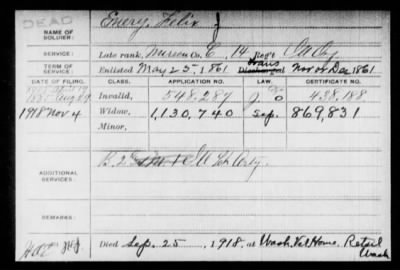 DEAD
Emery, Felix J
NAME OF
SOLDIER:
SERVICE:
Late rank, Co. C, 14 Reg't
TERM OF
SERVICE:
Enlisted May 25, 1861 Trans Discharged Nov or Dec 1861
DATE OF FILING.
CLASS.
APPLICATION NO.
LAW.
CERTIFICATE NO.
Invalid, 548.287 J. 438.188
1918 Nov 4 Widow, 1,130,740 Sep. 869,831
Minor,
ADDITIONAL
SERVICES:
REMARKS:
Died Sep. 25, 1918, at Wash. Vet. Home, Retsil
Wash